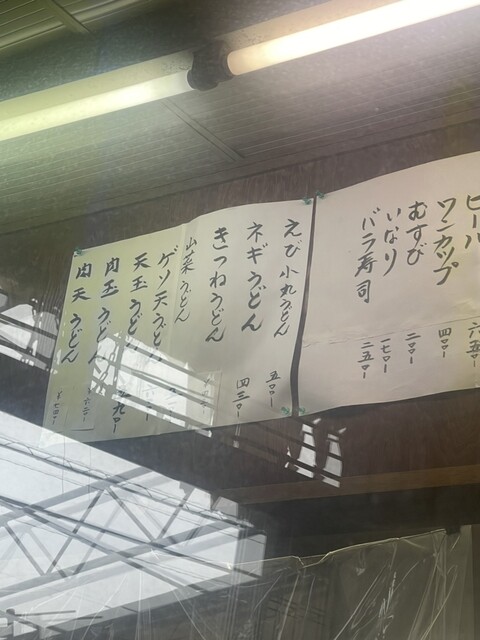 ビール 六五〇-
ワンカップ 四〇〇-
むすび 二〇〇-
いなり 一七〇-
バラ寿司 二五〇-
えび小丸うどん 五〇〇-
ネギうどん 四三〇-
きつねうどん
山菜うどん
ゲソ天うどん
天玉うどん
肉玉うどん
肉天うどん